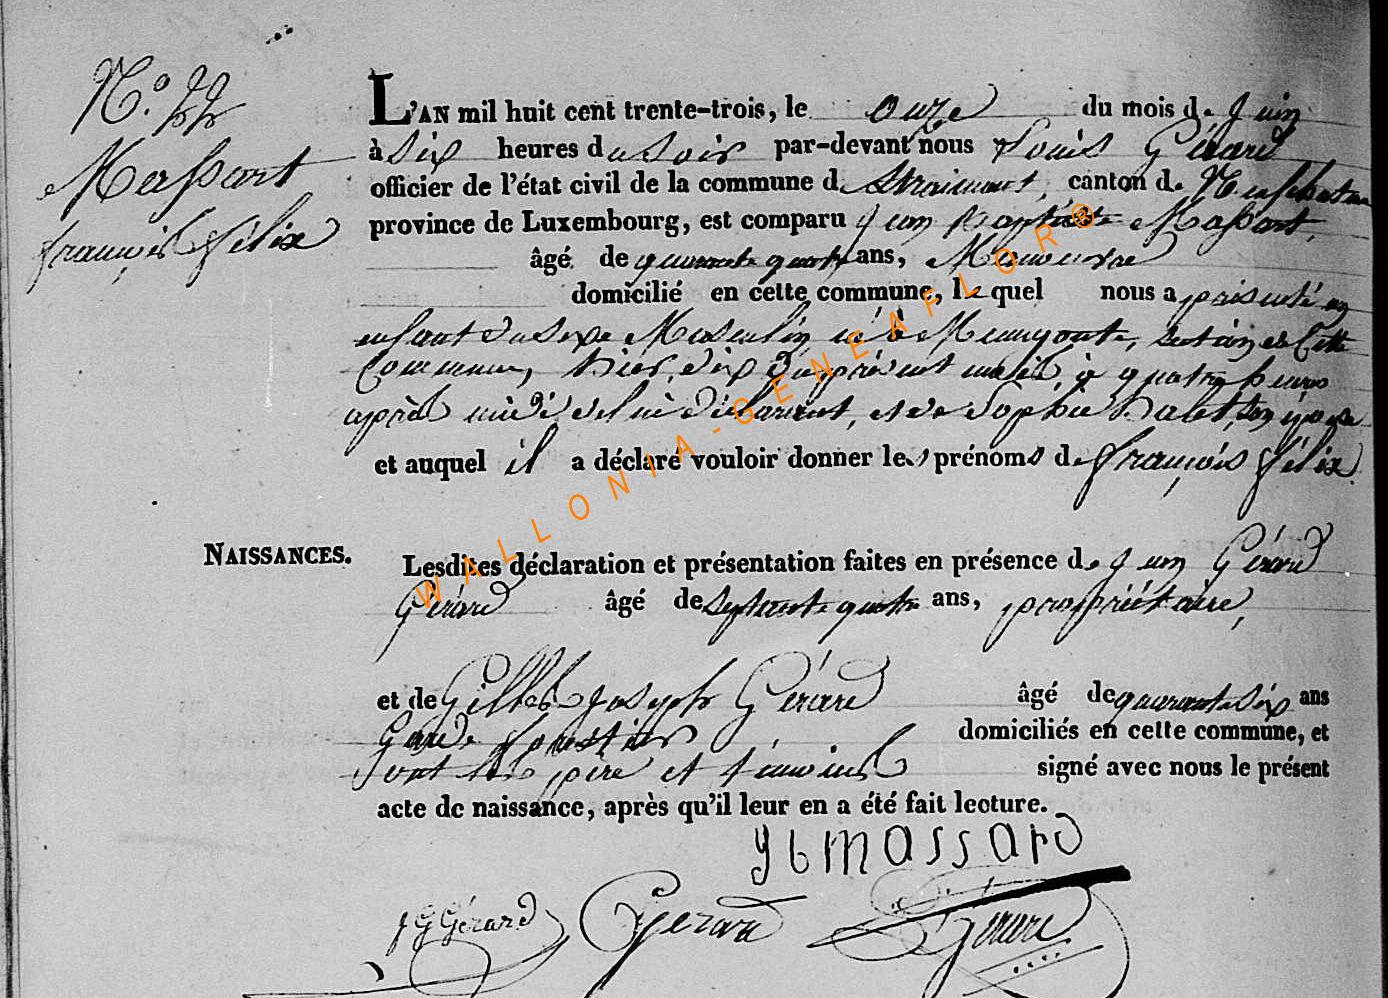 N.° 22
Massart
françois félix
L'AN mil huit cent trente-trois, le onze du mois de Juin
à six heures du soir par-devant nous Louis Gérard
officier de l'état civil de la commune de Straimont, canton de Neufchateau
province de Luxembourg, est comparu Jean Baptiste Massart,
âgé de quarante quatre ans, Manoeuvre
domicilié en cette commune, le quel nous a présenté un
enfant du sexe Masculin né à Menugoutte, section de Cette
Commune, hier, dix du présent mois, à quatre heures
après midi de lui déclarant, et de Sophie son épouse
et auquel il a déclaré vouloir donner les prénoms de françois félix.
NAISSANCES.
Lesdites déclaration et présentation faites en présence de Jean Gérard
Gérard âgé de septante quatre ans, propriétaire,
et de Gilles Joseph Gérard âgé de quarante six ans
Garde forestier domiciliés en cette commune, et
Sont les père et témoins signé avec nous le présent
acte de naissance, après qu'il leur en a été fait lecture.
J b massard
J G Gérard Gerard L Gérard
WALLONIA-GENEAFLOR®